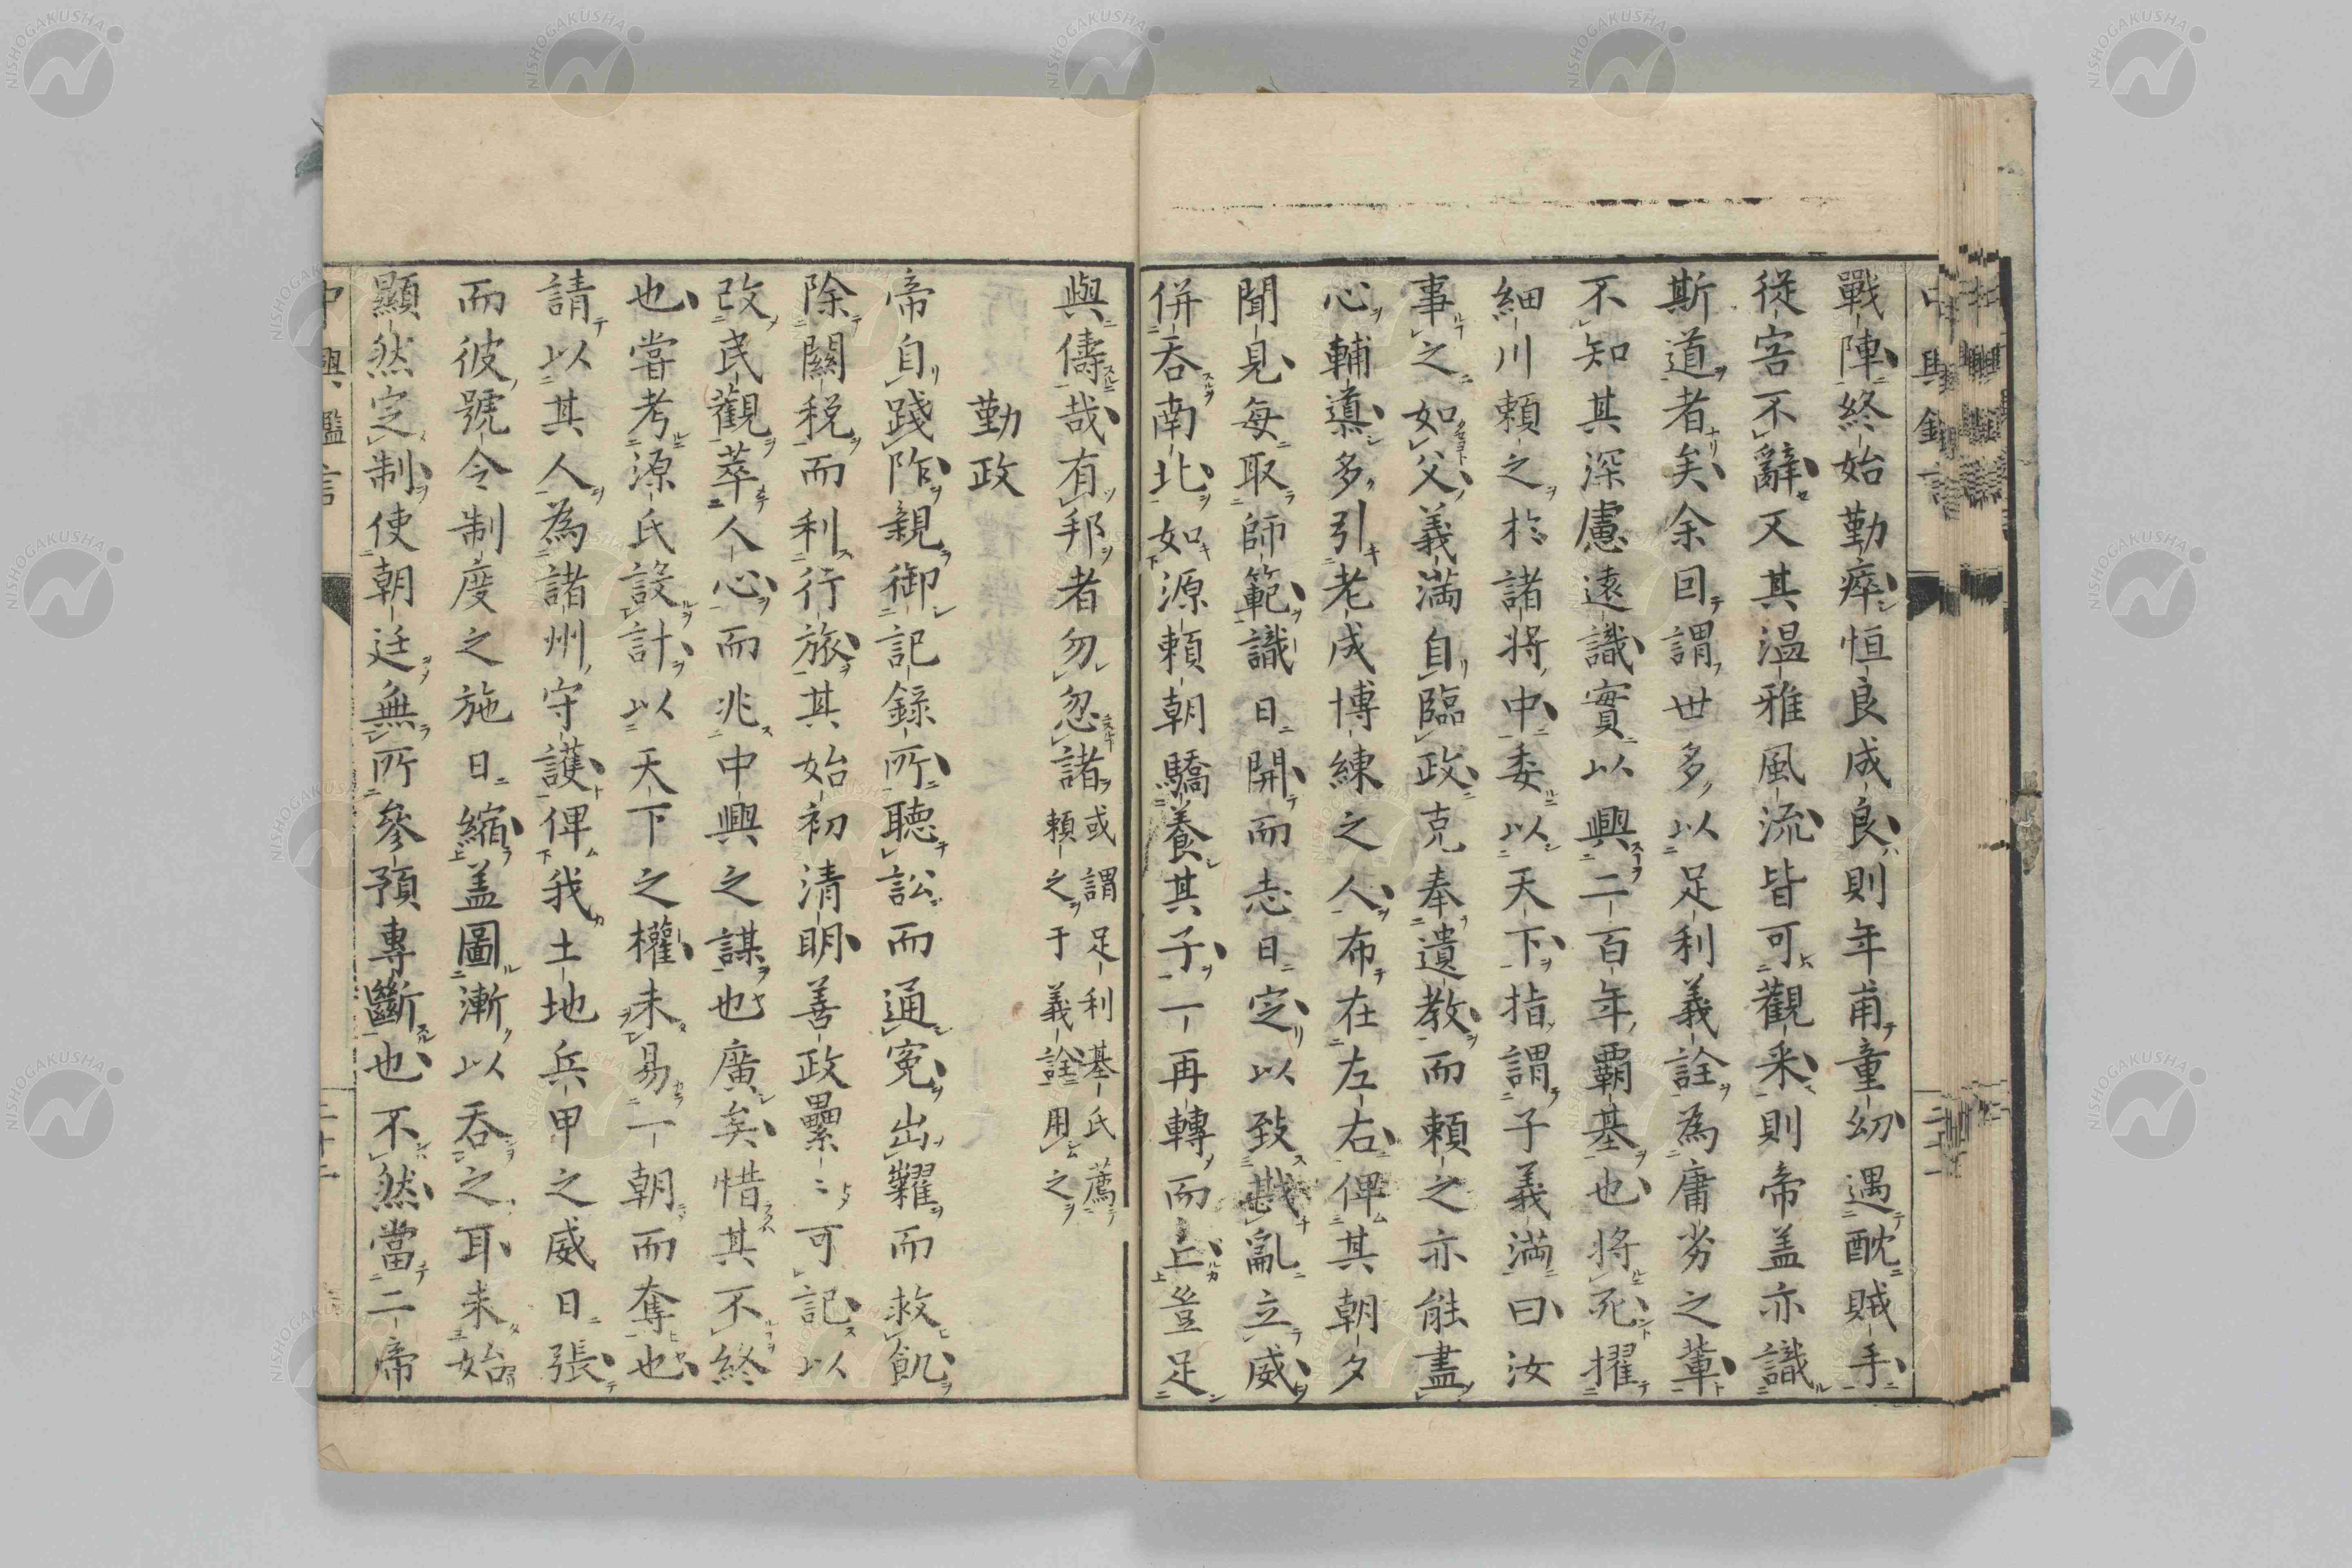 戰陣終始勤瘁恒良成良則年甫童幼遇酖賊手
從容不辭又其温雅風流皆可觀釆則帝盖亦識
斯道者矣余回謂世多以足利義詮為庸劣之輩
不知其深慮遠識實以興二百年覇基也將死擢
細川頼之於諸將中委以天下指謂子義満曰汝
事之如父義満自臨政克奉遺教而頼之亦能盡
心輔導多引老成博練之人布在左右俾其朝夕
聞見每取師範識日開而志日定以致戡亂立威
併吞南北如源頼朝驕養其子一再轉而亡豈足
與儔哉有邦者勿忽諸
或謂足利基氏薦
頼之于義詮用之
勤政
帝自踐阼親御記録所聽訟而通寃出糶而救飢
除關税而利行旅其始初清明善政纍〻可記以
改民觀萃人心而兆中興之謀也廣矣惜其不終
也嘗考源氏設計以天下之權未易一朝而奪也
請以其人為諸州守護俾我土地兵甲之威日張
而彼號令制度之施日縮盖圖漸以吞之耳未始
顯然定制使朝廷無所參預專斷也不然當二帝
中興鑑言
NISHOGAKUSHA